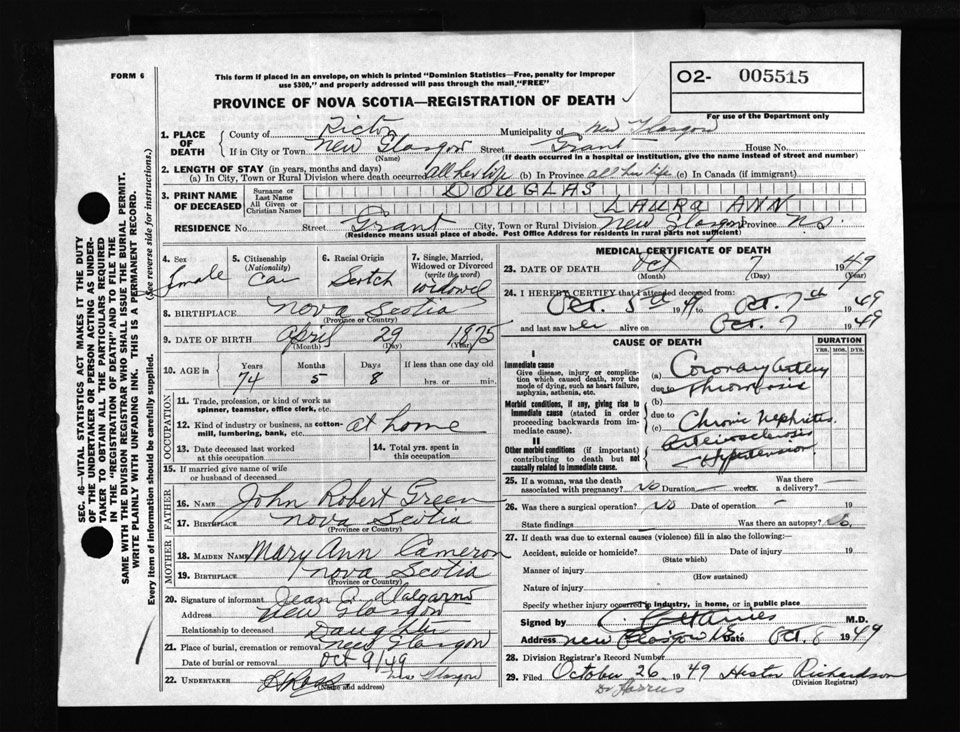 FORM 6
This form if placed in an envelope, on which is printed "Dominion Statistics—Free, penalty for improper
use $300," and properly addressed will pass through the mail "FREE"
O2- 005515
For use of the Department only
PROVINCE OF NOVA SCOTIA—REGISTRATION OF DEATH
1. PLACE OF DEATH
County of Pictou Municipality of New Glasgow
If in City or Town New Glasgow Street Grant House No.
(Name) (If death occurred in a hospital or institution, give the name instead of street and number)
2. LENGTH OF STAY (in years, months and days)
(a) In City, Town or Rural Division where death occurred all her life (b) In Province all her life (c) In Canada (if immigrant)
3. PRINT NAME OF DECEASED
Surname or Last Name DOUGLAS
All Given or Christian Names LAURA ANN
RESIDENCE No. Street Grant City, Town or Rural Division New Glasgow Province N.S.
(Residence means usual place of abode. Post Office Address for residents in rural parts not sufficient)
4. Sex Female
5. Citizenship (Nationality) Can
6. Racial Origin Scotch
7. Single, Married, Widowed or Divorced (write the word)
8. BIRTHPLACE Nova Scotia
(Province or Country)
9. DATE OF BIRTH April 29 1875
(Month) (Day) (Year)
10. AGE in Years 74 Months 5 Days 8 If less than one day old hrs. or min.
OCCUPATION
11. Trade, profession, or kind of work as spinner, teamster, office clerk, etc.
12. Kind of industry or business, as cotton-mill, lumbering, bank, etc. at home
13. Date deceased last worked at this occupation
14. Total yrs. spent in this occupation
15. If married give name of wife or husband of deceased
FATHER
16. NAME John Robert Green
17. BIRTHPLACE Nova Scotia
(Province or Country)
MOTHER
18. MAIDEN NAME Mary Ann Cameron
19. BIRTHPLACE Nova Scotia
(Province or Country)
20. Signature of informant Jean Dalgarno
Address New Glasgow
Relationship to deceased Daughter
21. Place of burial, cremation or removal New Glasgow
Date of burial or removal Oct 9/49
22. UNDERTAKER New Glasgow
(Name and address)
MEDICAL CERTIFICATE OF DEATH
23. DATE OF DEATH Oct 7 1949
(Month) (Day) (Year)
24. I HEREBY CERTIFY that I attended deceased from:
Oct. 5th 1949 to Oct. 7th 1949
and last saw her alive on Oct. 7 1949
CAUSE OF DEATH
DURATION
YRS. MOS. DYS.
I
Immediate cause
Give disease, injury or complication which caused death, NOT the mode of dying, such as heart failure, asphyxia, asthenia, etc.
(a) Coronary Artery
due to Thrombosis
Morbid conditions, if any, giving rise to immediate cause (stated in order proceeding backwards from immediate cause).
(b)
due to Chronic Nephritis
(c)
II
Other morbid conditions (if important) contributing to death but not causally related to immediate cause.
Arteriosclerosis
Hypertension
25. If a woman, was the death associated with pregnancy? No Duration weeks. Was there a delivery?
26. Was there a surgical operation? No Date of operation 19
State findings Was there an autopsy? No.
27. If death was due to external causes (violence) fill in also the following:
Accident, suicide or homicide? Date of injury 19
(State which)
Manner of injury
(How sustained)
Nature of injury
Specify whether injury occurred in industry, in home, or in public place
Signed by M.D.
Address New Glasgow NS Date Oct. 8 1949
28. Division Registrar's Record Number
29. Filed October 26 1949 Hester Richardson
(Division Registrar)
Dr Harris
SEC. 46—VITAL STATISTICS ACT MAKES IT THE DUTY
OF THE UNDERTAKER OR PERSON ACTING AS UNDER-
TAKER TO OBTAIN ALL THE PARTICULARS REQUIRED
IN THE "REGISTRATION OF DEATH" AND TO FILE THE
SAME WITH THE DIVISION REGISTRAR WHO SHALL ISSUE THE BURIAL PERMIT.
WRITE PLAINLY WITH UNFADING INK. THIS IS A PERMANENT RECORD.
Every item of information should be carefully supplied. (See reverse side for instructions.)